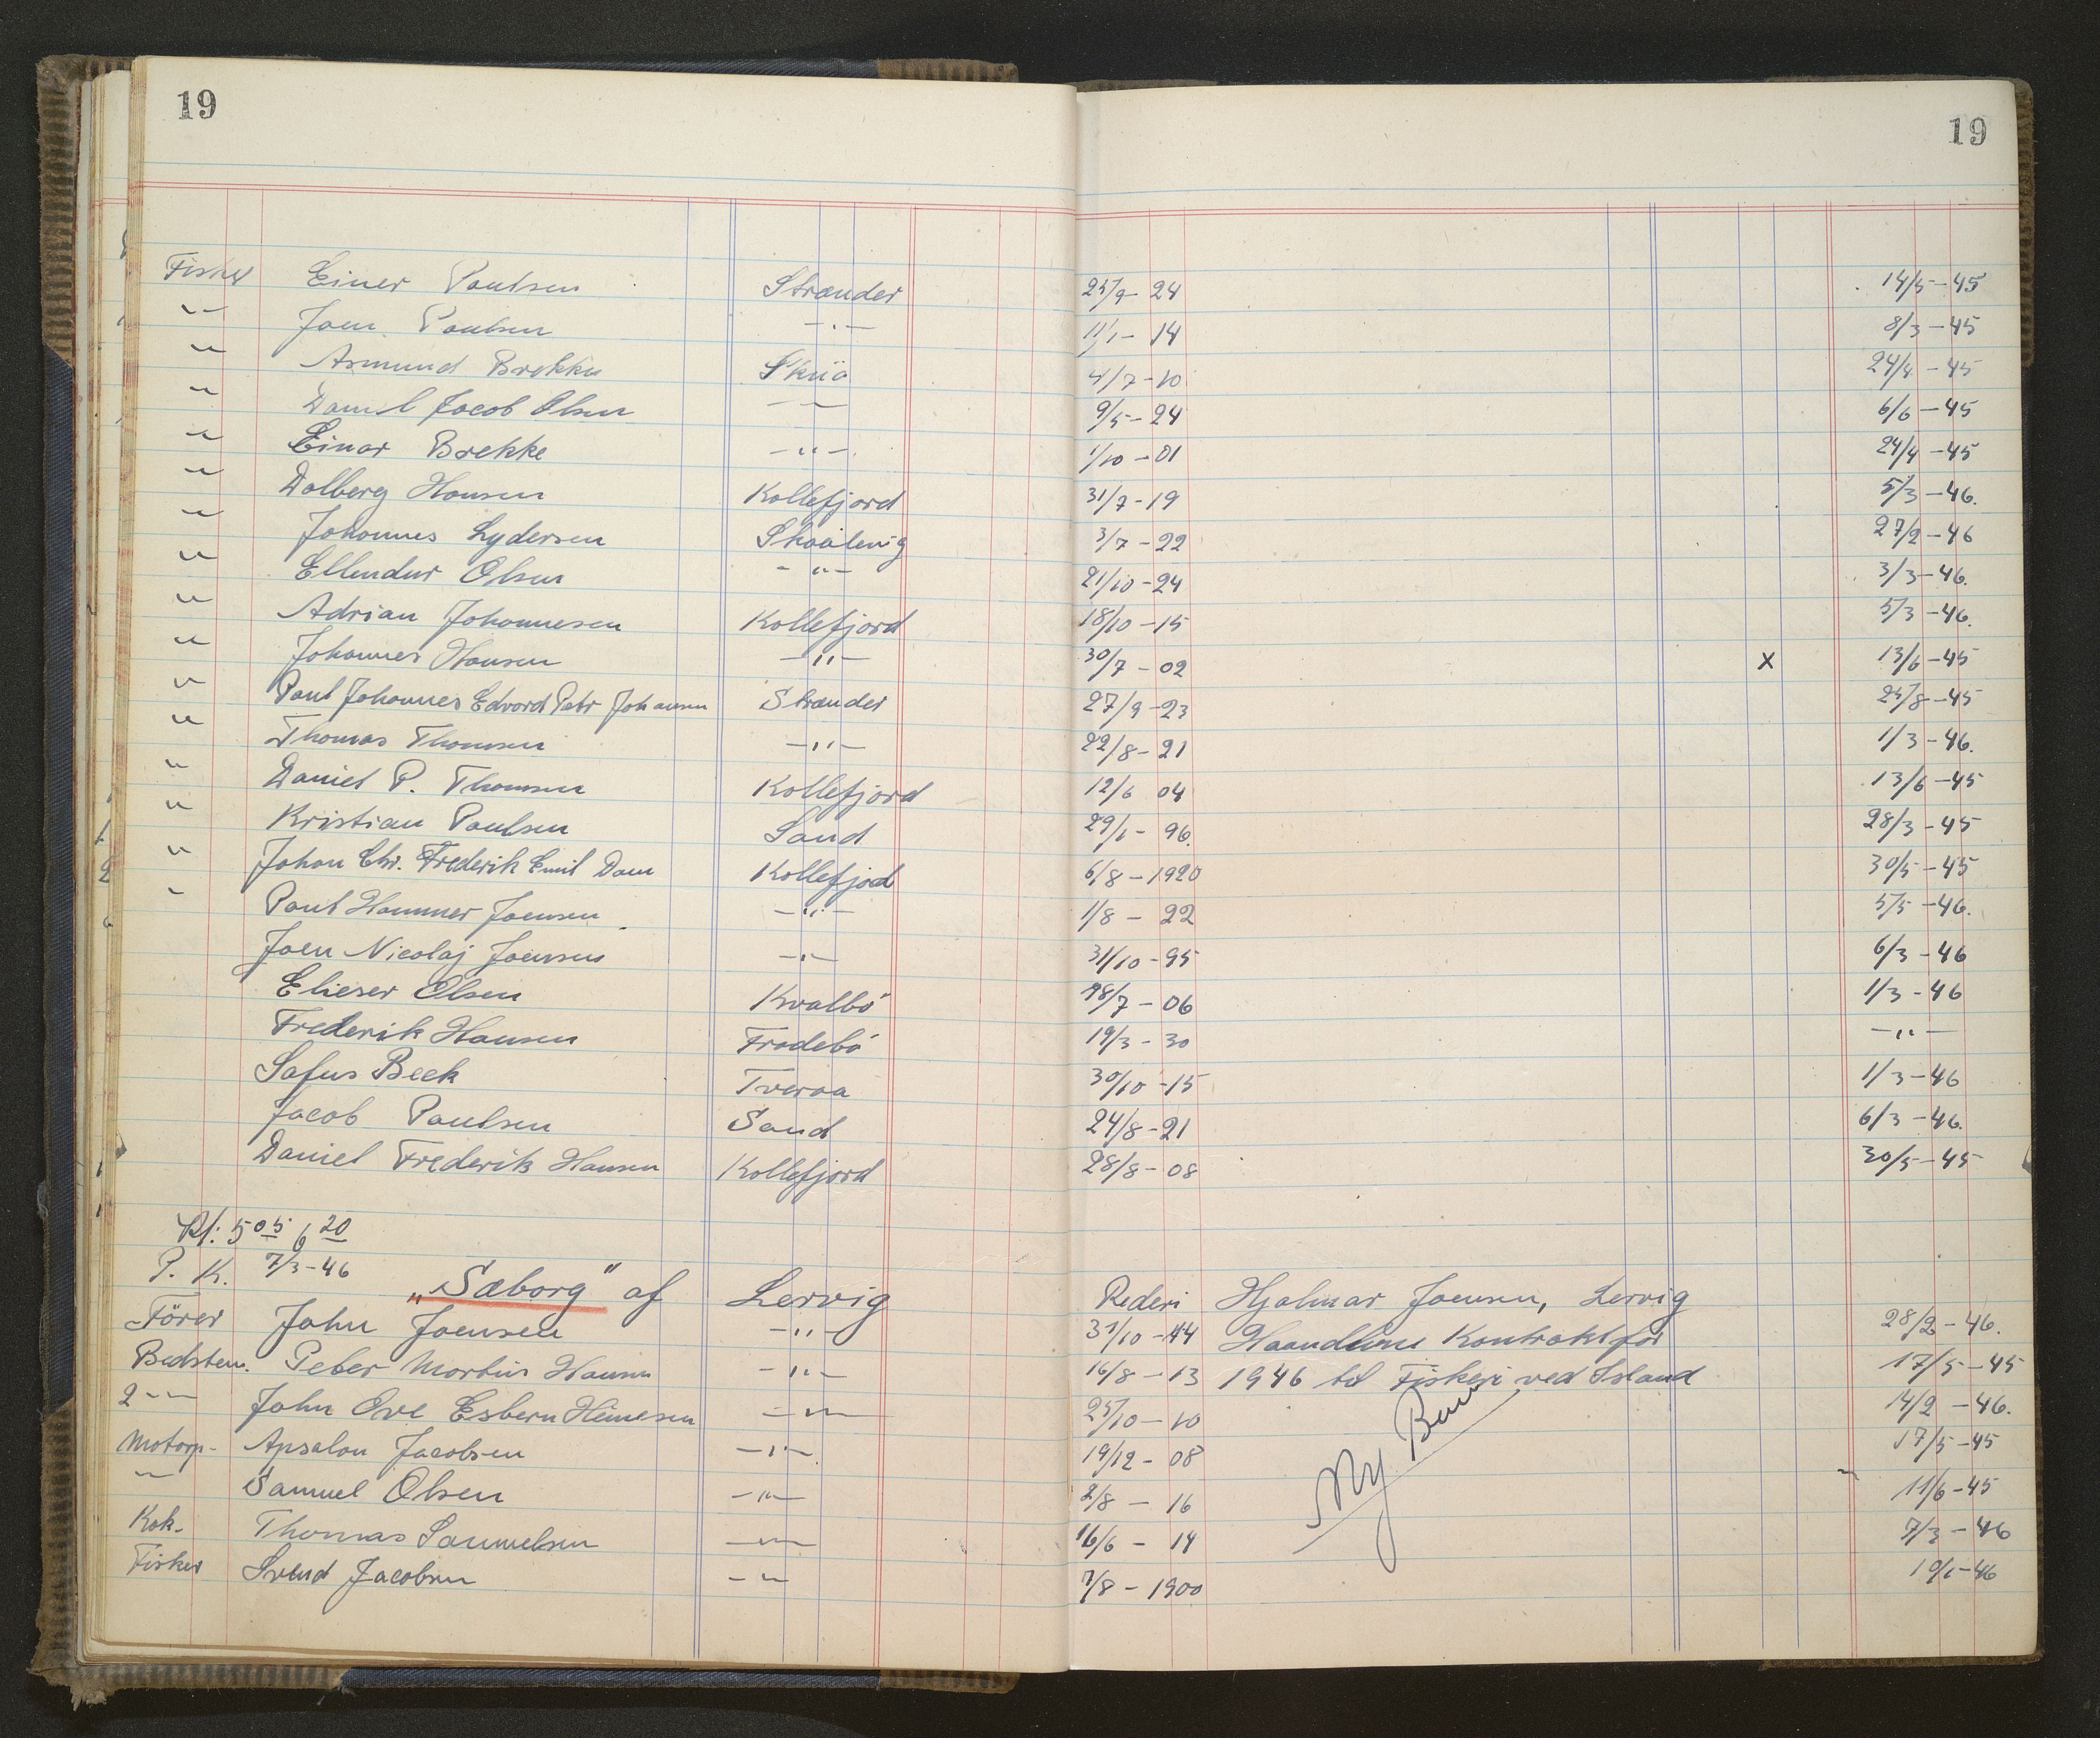 19 19
Fisker Einer Poulsen Strænder 25/9-24 14/5-45
-"- Joen Poulsen -"- 11/1-14 8/3-45
" Asmund Brekke Skuö 4/7-10 24/4-45
" Daniel Jacob Olsen -"- 9/5-24 6/6-45
" Einar Brekke -"- 1/10-01 24/4-45
" Dalberg Hansen Kollefjord 31/7-19 5/3-46.
" Johannes Lydersen Skaalevig 3/7-22 27/2-46
" Ellendur Olsen -"- 21/10-24 3/3-46.
" Adrian Johannesen Kollefjord 18/10-15 5/3-46.
" Johannes Hansen -"- 30/7-02 x 13/6-45
" Poul Johannes Edvard Petr Johansen Strænder 27/9-23 25/8-45
" Thomas Thomsen -"- 22/8-21 1/3-46.
" Daniel P. Thomsen Kollefjord 12/6 04 13/6-45
" Kristian Poulsen Sand 29/1-96. 28/3-45
" Johan Chr. Frederik Emil Dam Kollefjord 6/8-1920 30/5-45
" Poul Hammer Joensen -"- 1/8-22 5/5-46.
Joen Nicolaj Joensen -"- 31/10-95 6/3-46
Elieser Olsen Kvalbö 18/7-06 1/3-46
Frederik Hansen Frodebö 19/3-30 -"-
Sofus Beck Tveraa 30/10-15 1/3-46
Jacob Poulsen Sand 24/8-21 6/3-46.
Daniel Frederik Hansen Kollefjord 28/8-08 30/5-45
Kl: 5 05 6 20
P. K. 7/3-46
"Sæborg" af Lervig Rederi Hjalmar Joensen, Lervig
Förer John Joensen -"- 31/10-44 Haandlins Kontrakt for 28/2-46.
Bedstem. Peter Morbus Hansen -"- 16/8-13 1946 til Fiskeri ved Island 17/5-45
2 -"- John Ove Esbern Heinesen -"- 25/10-10 14/2-46.
Motorp. Apsalon Jacobsen -"- 19/12-08 17/5-45
-"- Samuel Olsen -"- 2/8-16 Ny 11/6-45
Kok. Thomas Samuelsen -"- 16/6-14 7/3-46
Fisker Svend Jacobsen -"- 7/8-1900 10/1-46